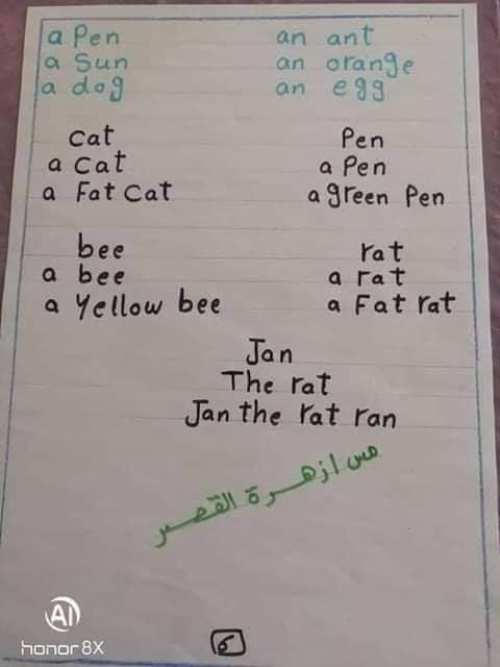 a Pen
a Sun
a dog
an ant
an orange
an egg
Cat
a Cat
a Fat Cat
Pen
a Pen
a green Pen
bee
a bee
a Yellow bee
rat
a rat
a Fat rat
Jan
The rat
Jan the rat ran
مس ازهرة القصر
AI
honor 8X